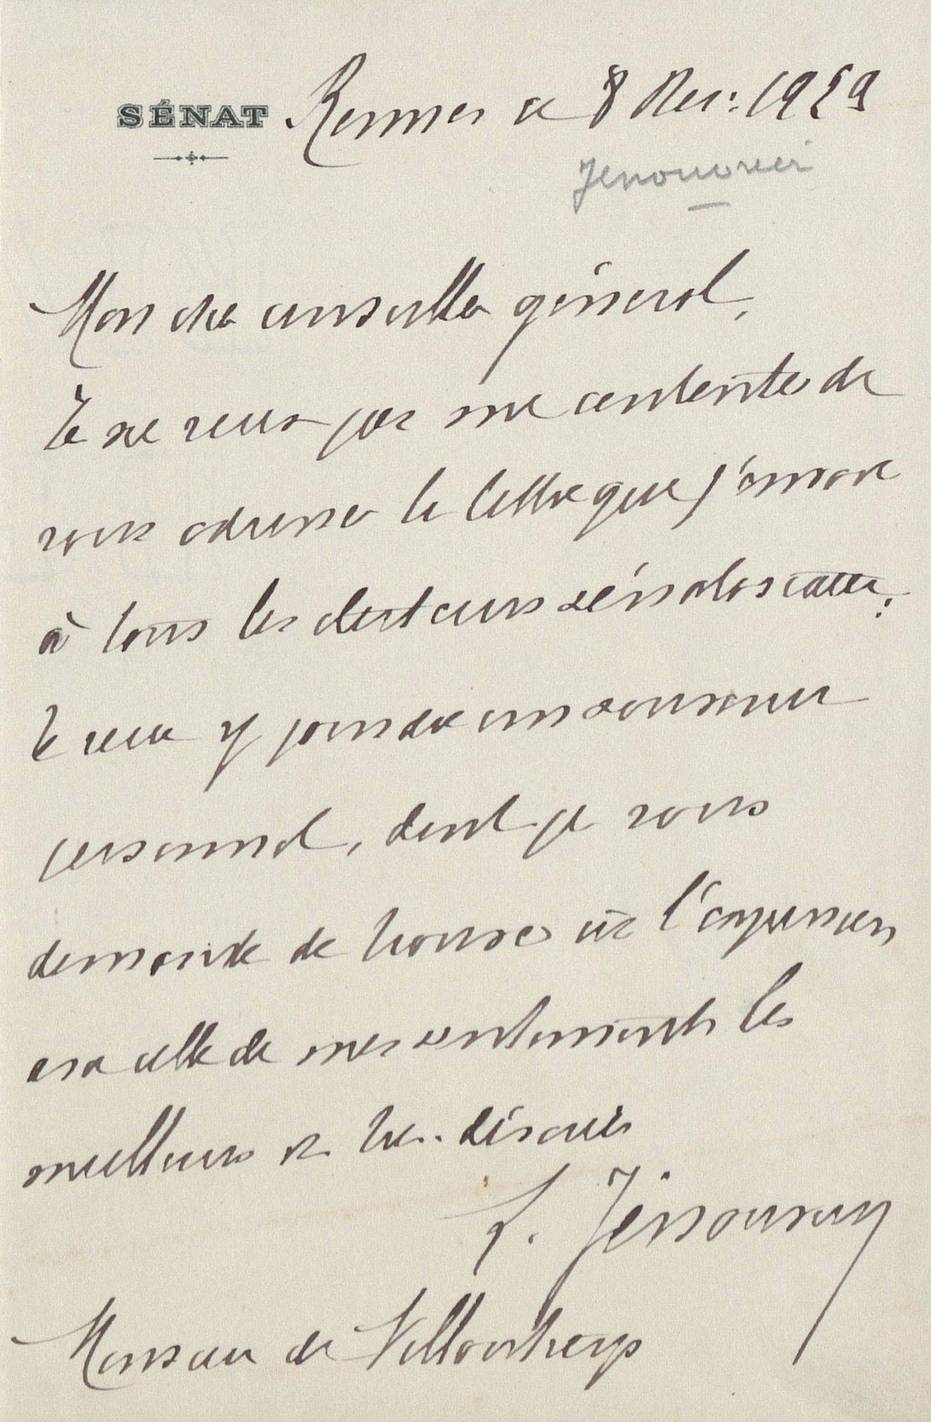 SÉNAT
Rennes le 8 Nov. 1929
Jenouvrier
Mon cher conseiller général,
Je ne veux pas me contenter de
vous adresser la lettre que j'envoie
à tous les électeurs sénatoriaux.
Je veux y joindre un souvenir
personnel, dont je vous
demande de trouver ici l'expression
avec celle de mes sentiments les
meilleurs et très dévoués
L. Jénouvrier
Monsieur de